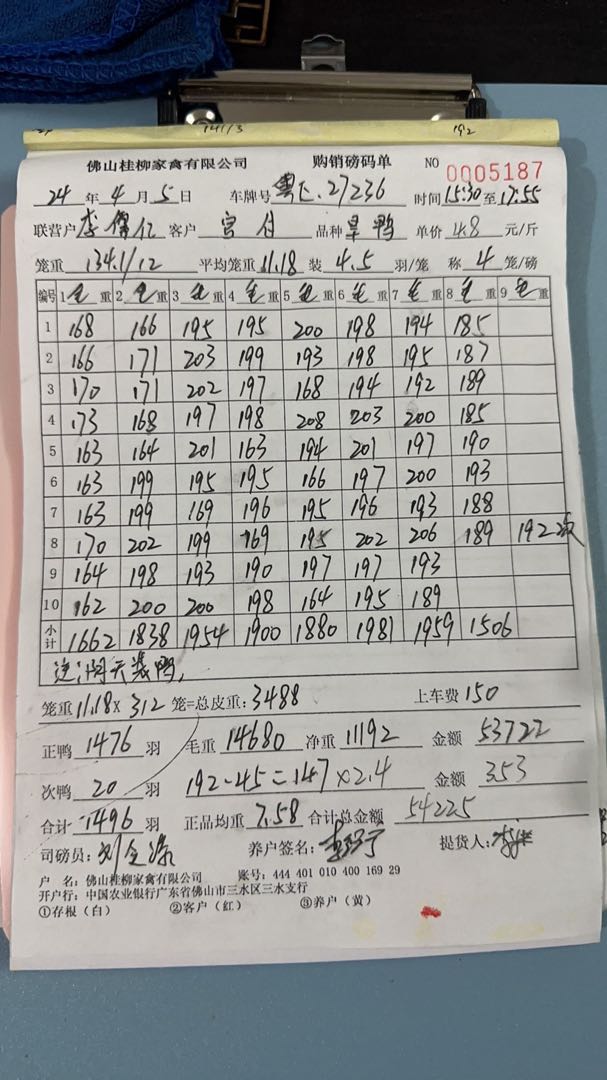 192
佛山桂柳家禽有限公司 购销磅码单 NO 0005187
24年4月5日 车牌号 27236 时间15:30至17:55
联营户 李 客户 宫付 品种 旱鸭 单价 4.8 元/斤
笼重 134.1/12 平均笼重 11.18 装 4.5 羽/笼 称 4 笼/磅
编号 1毛重 2毛重 3毛重 4毛重 5毛重 6毛重 7毛重 8毛重 9毛重
1 168 166 195 195 200 198 194 185
2 166 171 203 199 193 198 195 187
3 170 171 202 197 168 194 192 189
4 173 168 197 198 208 203 200 185
5 163 164 201 163 194 201 197 190
6 163 199 195 195 166 197 200 193
7 163 199 169 196 195 196 193 188
8 170 202 199 169 195 202 206 189 192次
9 164 198 193 190 197 197 193
10 162 200 200 198 164 195 189
小计 1662 1838 1954 1900 1880 1981 1959 1506
笼重 11.18 X 312 笼=总皮重:3488 上车费 150
正鸭 1476 羽 毛重 14680 净重 11192 金额 53722
次鸭 20 羽 192-45=147×2.4 金额 353
合计 1496 羽 正品均重 7.58 合计总金额 54225
司磅员: 养户签名: 提货人:
户 名:佛山桂柳家禽有限公司 账号:444 401 010 400 169 29
开户行:中国农业银行广东省佛山市三水区三水支行
①存根(白) ②客户(红) ③养户(黄)